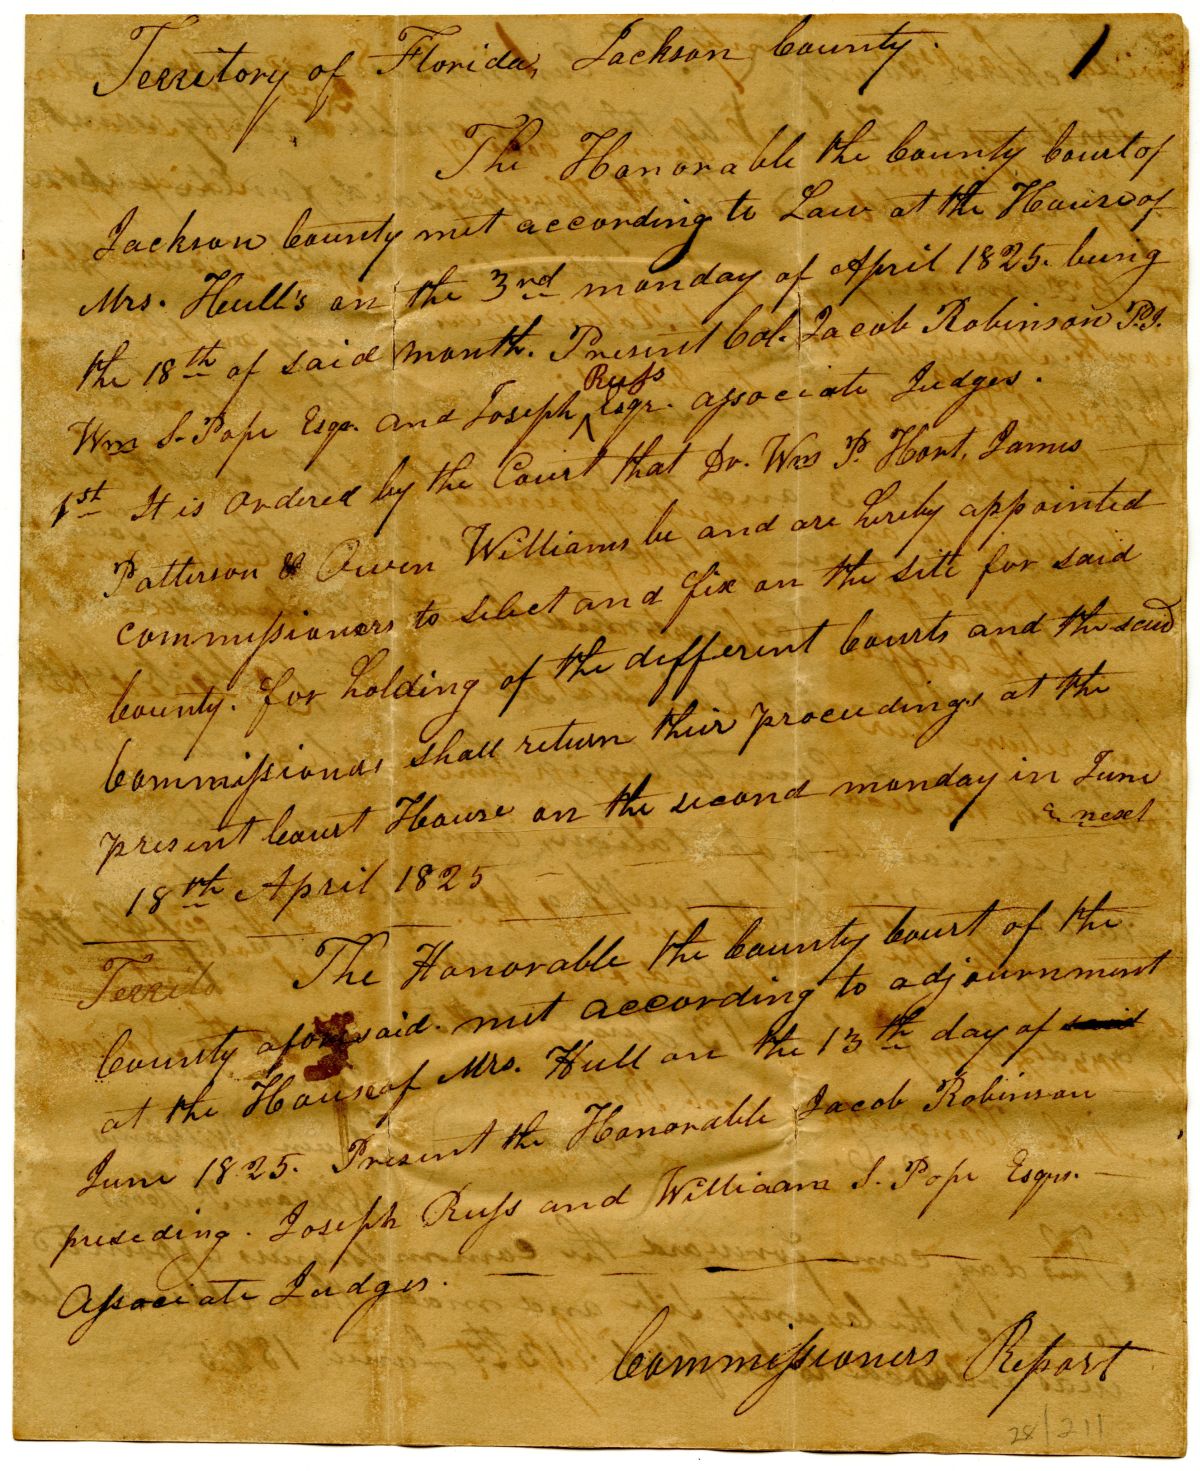 Territory of Florida, Jackson County.
The Honorable the County Court of
Jackson County met according to Law at the House of
Mrs. Hull's on the 3rd monday of April 1825. being
the 18th of said month. Present Col. Jacob Robinson P.J.
Russ
Wm S. Pope Esqr. and Joseph ^ Esqr. associate Judges.
1st It is ordered by the Court that Dr. Wm P. Hort, James
Patterson & Owen Williams be and are hereby appointed
commissioners to select and fix on the site for said
County. for holding of the different Courts and the said
Commissioners shall return their proceedings at the
present Court House on the second monday in June
& next
18th April 1825
The Honorable the County Court of the
Territo
County aforesaid. met according to adjournment
at the House of Mrs. Hull on the 13th day of said
June 1825. Present the Honorable Jacob Robinson
preseding. Joseph Russ and William S. Pope Esqrs.
Associate Judges.
Commissioners Report
28/211